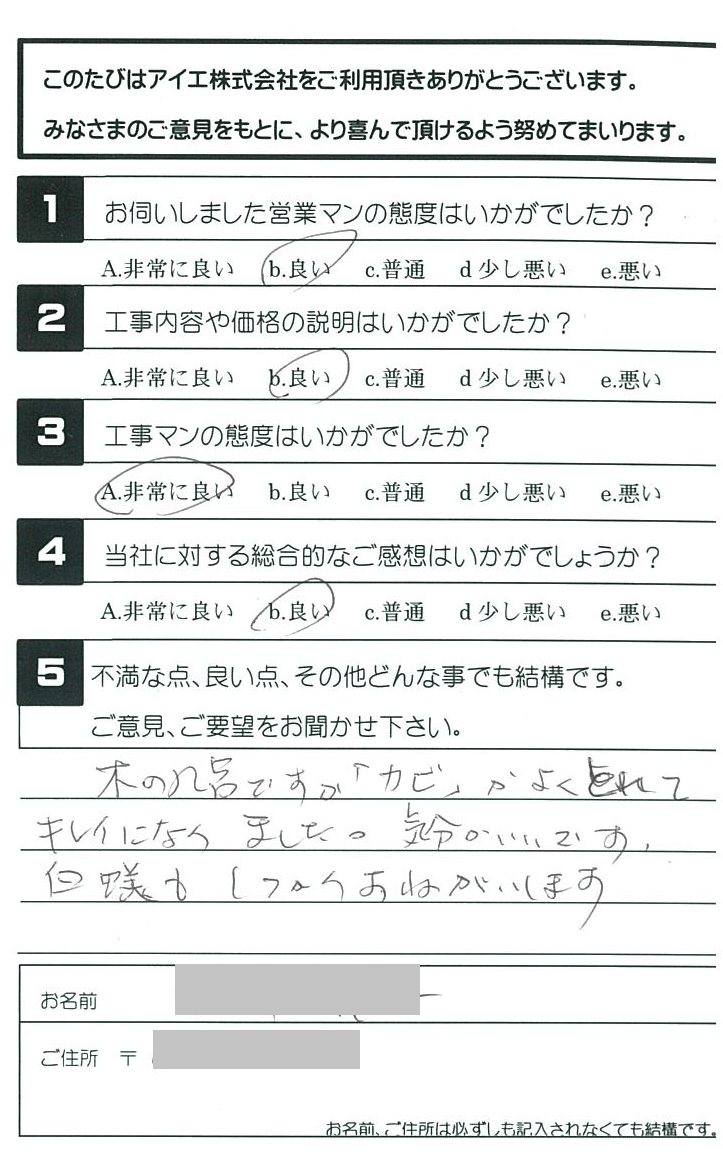 このたびはアイエ株式会社をご利用頂きありがとうございます。
みなさまのご意見をもとに、より喜んで頂けるよう努めてまいります。
1 お伺いしました営業マンの態度はいかがでしたか?
A.非常に良い b.良い c.普通 d 少し悪い e.悪い
2 工事内容や価格の説明はいかがでしたか?
A.非常に良い b.良い c.普通 d 少し悪い e.悪い
3 工事マンの態度はいかがでしたか?
A.非常に良い b.良い c.普通 d 少し悪い e.悪い
4 当社に対する総合的なご感想はいかがでしょうか?
A.非常に良い b.良い c.普通 d 少し悪い e.悪い
5 不満な点、良い点、その他どんな事でも結構です。
ご意見、ご要望をお聞かせ下さい。
木の風呂ですが「カビ」がよくとれて
キレイになりました。気分がいいです。
白蟻もしっかりおねがいします
お名前
ご住所 〒
お名前、ご住所は必ずしも記入されなくても結構です。